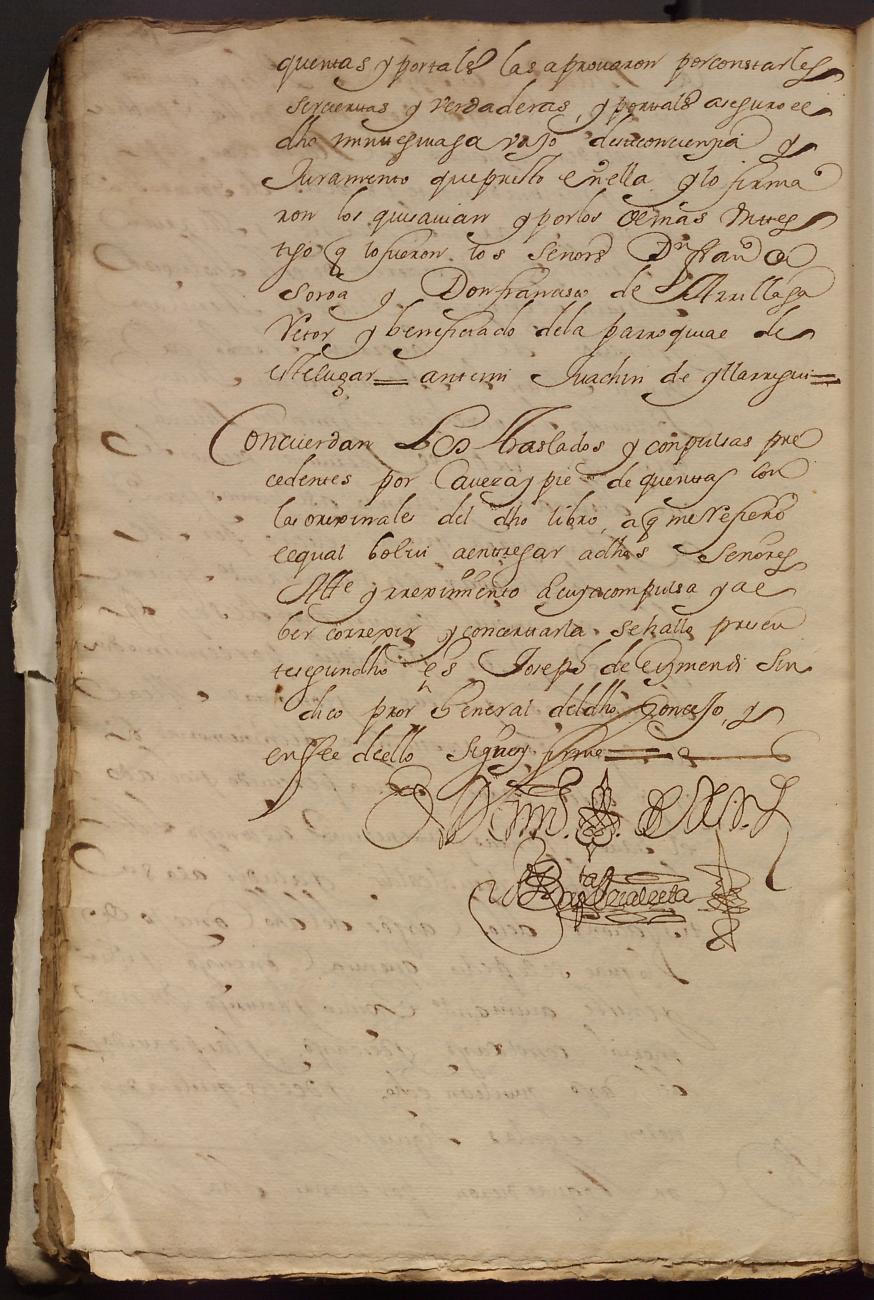 quentas y portales las aprouaron porconstarles
serciertas y verdaderas, y portales aseguro el
dho vajo desuconcienzia y
Juramento quepresto enella y lo firma
ron los quesauian y porlos demas untes
tigo q lofueron los Senores Dn franco de
Soroa y Donfrancisco de Arrillaga
Retor y beneficiado dela parroquial de
estelugar = antemi Juachin de yllarregui =
Concuerdan Los Traslados y conpulsas pre
cedentes por Caveza y pie de quentas con
las orixinales del dho libro, aq merefiero
eequal bolui aentregar adhos Senores
Alle y rreximiento de cuya compulsa y a e
ber correxir y concertarla se hallo presen
tesegundho es Joseph de Eizmendi Sin
dico pror General deldho Conzejo, y
enffee dello Signey firme =